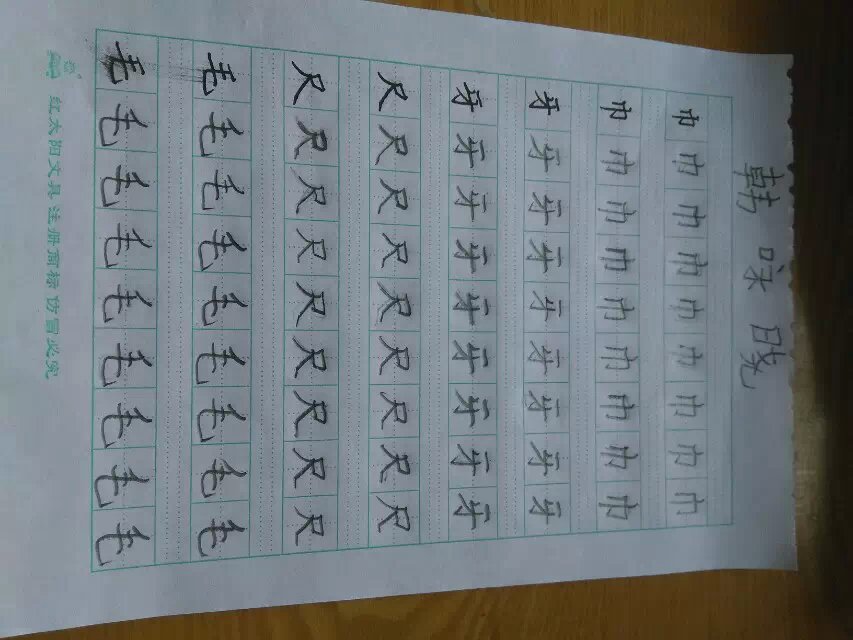 韩咏晓
巾巾巾巾巾巾巾巾巾
巾巾巾巾巾巾巾巾巾
牙牙牙牙牙牙牙牙牙
牙牙牙牙牙牙牙牙牙
尺尺尺尺尺尺尺尺尺
尺尺尺尺尺尺尺尺尺
毛毛毛毛毛毛毛毛毛
毛毛毛毛毛毛毛毛毛
红太阳文具 注册商标 仿冒必究